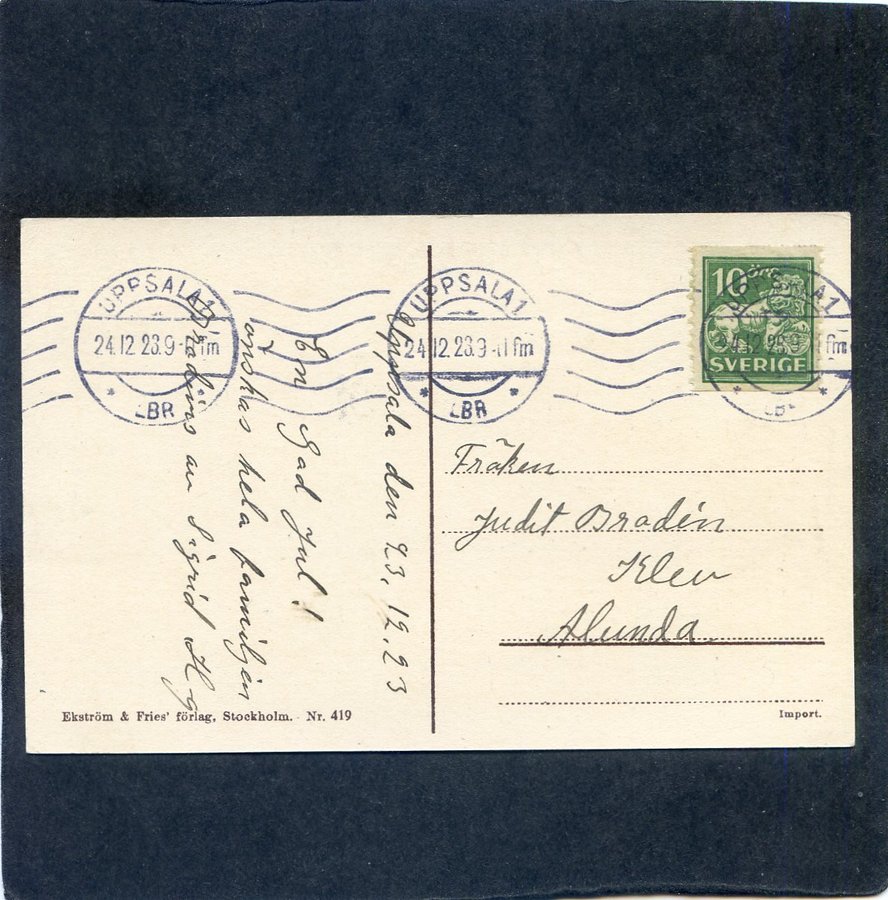 UPPSALA 1
24.12.23.9-11 fm
* LBR *
UPPSALA 1
24.12.23.9-11 fm
* LBR *
UPPSALA 1
24.12.23.9-11 fm
* LBR *
10 ÖRE
SVERIGE
Uppsala den 23.12.23
En God Jul!
önskas hela familjen
Bradéns av Sigrid
Fröken
Judit Bradén
Klev
Alunda
Ekström & Fries' förlag, Stockholm. Nr. 419
Import.